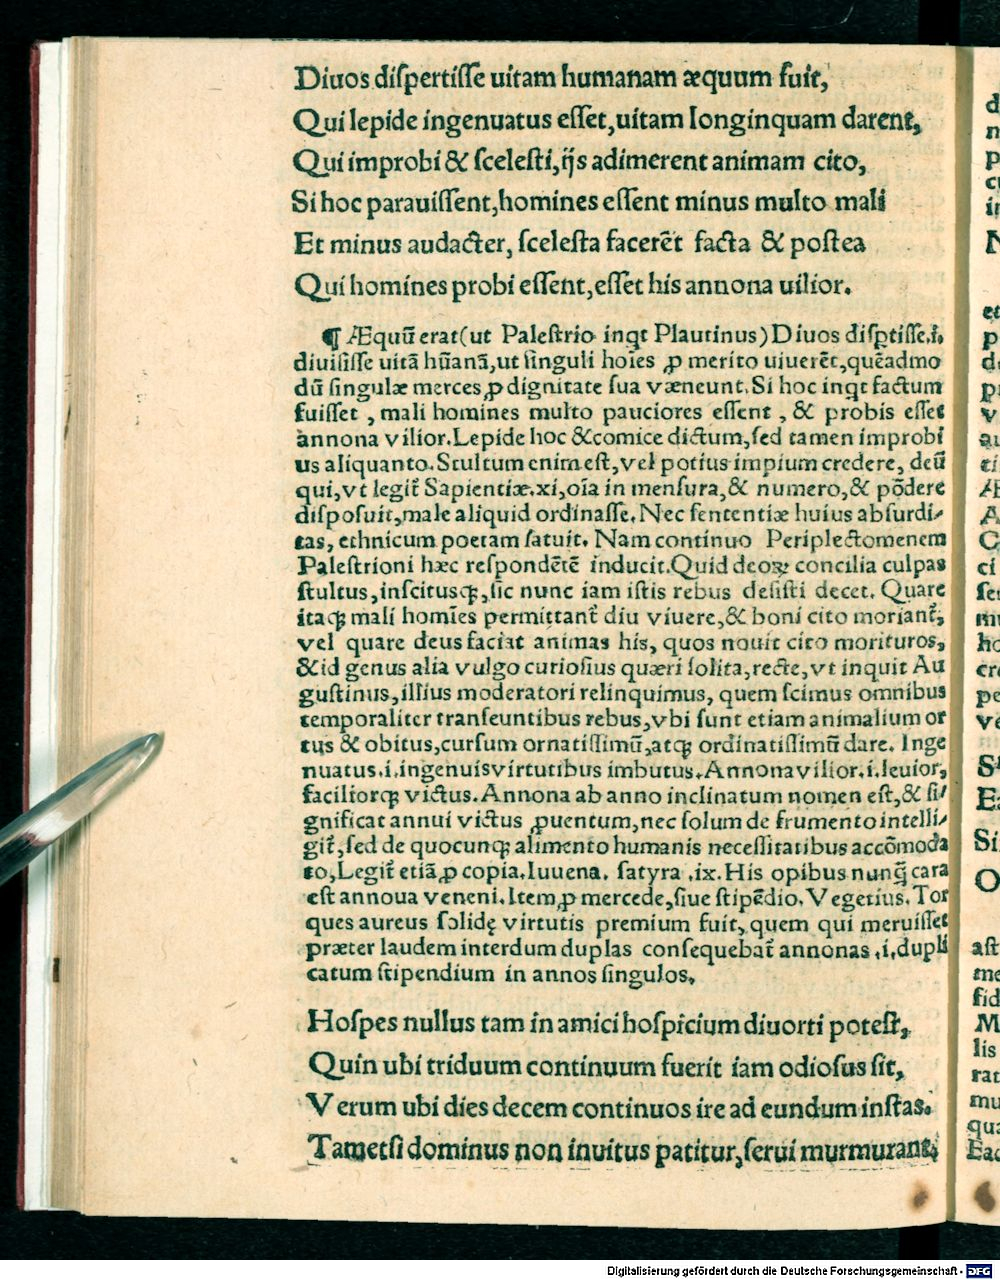 Diuos diſpertiſſe uitam humanam æquum fuit,
Qui lepide ingenuatus eſſet,uitam longinquam darent,
Qui improbi & ſceleſti,ijs adimerent animam cito,
Si hoc parauiſſent,homines eſſent minus multo mali
Et minus audacter, ſceleſta facerēt facta & poſtea
Qui homines probi eſſent,eſſet his annona uilior.
¶ Æquū erat(ut Paleſtrio inqt Plautinus)Diuos diſptiſſe.i.
diuiſiſſe uitā hūanā,ut ſinguli hoīes ꝓ merito uiuerēt,quēadmo
dū ſingulæ merces ꝓ dignitate ſua væneunt.Si hoc inqt factum
fuiſſet , mali homines multo pauciores eſſent , & probis eſſet
annona vilior.Lepide hoc &comice dictum,ſed tamen improbi
us aliquanto.Stultum enim eſt,vel potius impium credere, deū
qui,vt legit᷑ Sapientiæ.xi,oīa in menſura,& numero,& pōdere
diſpoſuit,male aliquid ordinaſſe.Nec ſententiæ huius abſurdi⸗
tas, ethnicum poetam latuit. Nam continuo Periplectomenem
Paleſtrioni hæc reſpondētē inducit.Quid deoꝝ concilia culpas
ſtultus,inſcitusꝗ,ſic nunc iam iſtis rebus deſiſti decet. Quare
itaꝗ mali homīes permittant᷑ diu viuere,& boni cito moriant᷑,
vel quare deus faciat animas his, quos nouit cito morituros,
&id genus alia vulgo curioſius quæri ſolita,recte,vt inquit Au
guſtinus,illius moderatori relinquimus, quem ſcimus omnibus
temporaliter tranſeuntibus rebus,vbi ſunt etiam animalium or
tus & obitus,curſum ornatiſſimū,atꝗ ordinatiſſimū dare. Inge
nuatus.i.ingenuis virtutibus imbutus.Annona vilior.i.leuior,
faciliorꝗ victus.Annona ab anno inclinatum nomen eſt,& ſi⸗
gnificat annui victus ꝓuentum,nec ſolum de frumento intelli⸗
git᷑,ſed de quocunꝗ alimento humanis neceſſitatibus accōmoda
to,Legit᷑ etiā ꝓ copia.Iuuena. ſatyra .ix.His opibus nunꝗ̄ cara
eſt annoua veneni.Item ꝓ mercede,ſiue ſtipēdio.Vegetius.Tor
ques aureus ſolidę virtutis premium fuit, quem qui meruiſſet
præter laudem interdum duplas conſequebat᷑ annonas .i.dupli
catum ſtipendium in annos ſingulos.
Hoſpes nullus tam in amici hoſpicium diuorti poteſt,
Quin ubi triduum continuum fuerit iam odioſus ſit,
Verum ubi dies decem continuos ire ad eundum inſtas.
Tametſi dominus non inuitus patitur,ſerui murmurant,
Digitalisierung gefördert durch die Deutsche Forschungsgemeinschaft - DFG